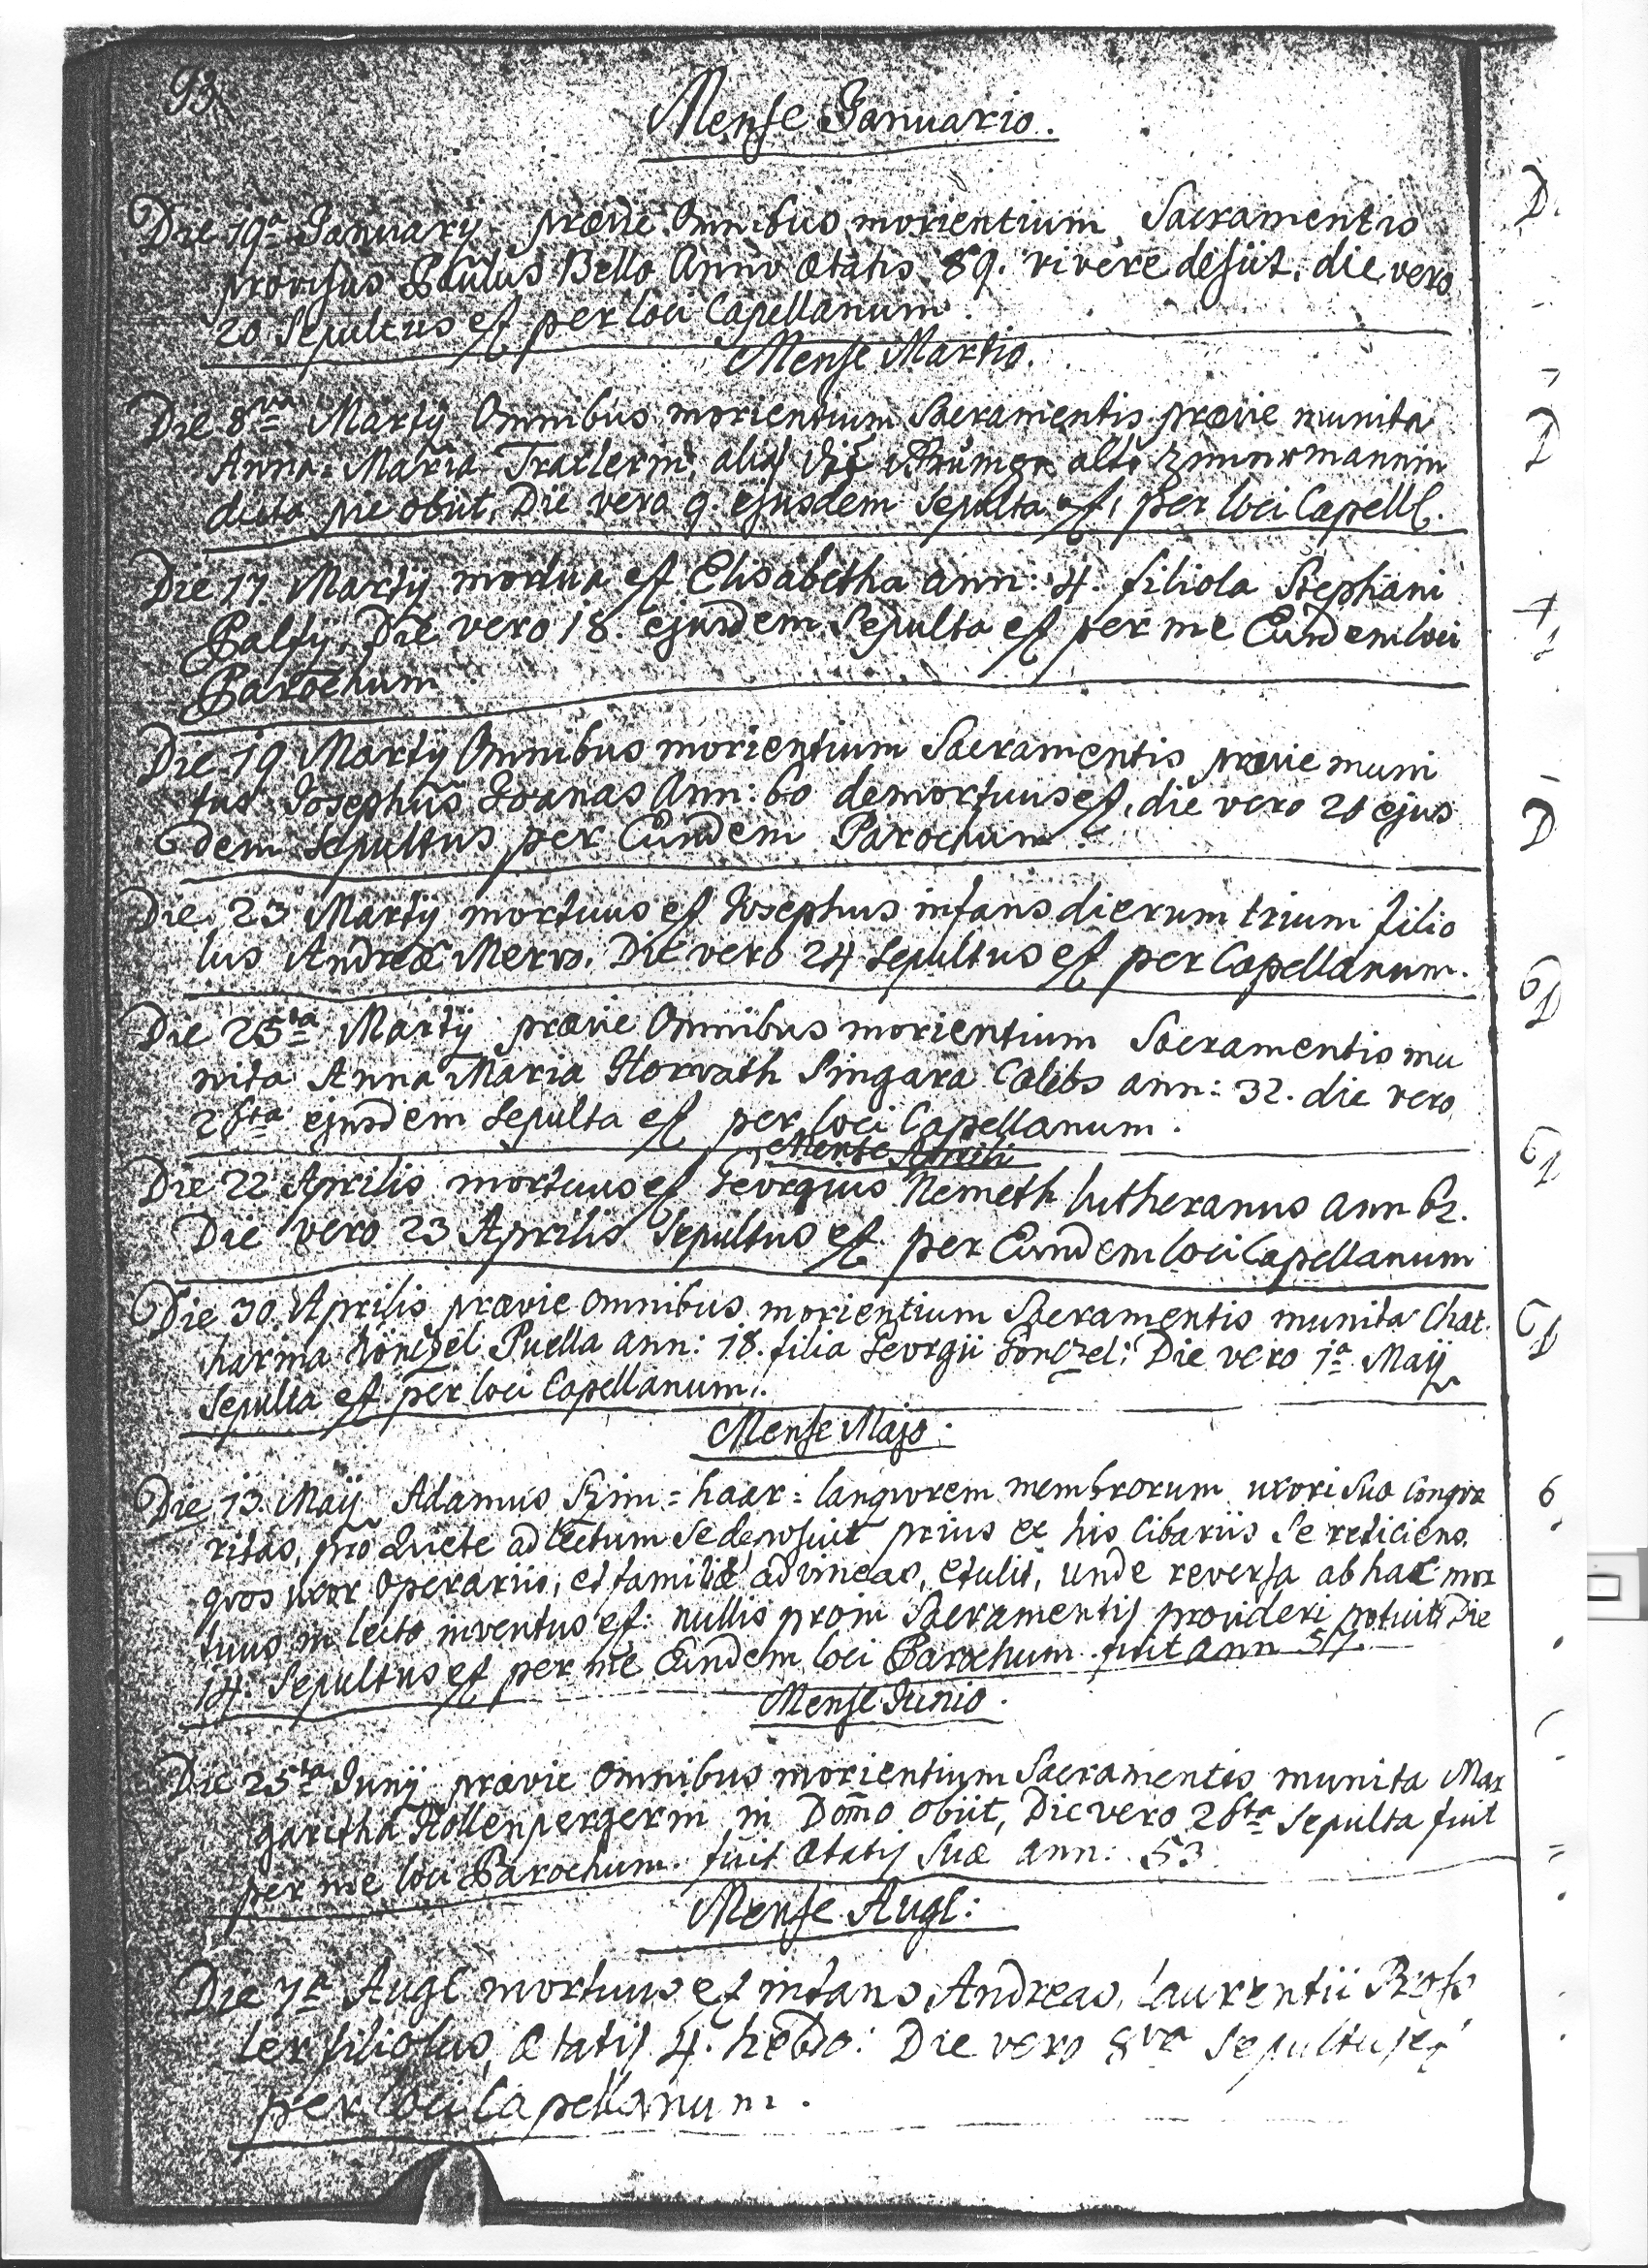 93
Mense Januario.
Die 19a Januarij prævie Omnibus morientium Sacramentis
provisus Paulus Bello Anno ætatis 89. vivere desiit, die vero
20 Sepultus est per loci Capellanum.
Mense Martio.
Die 8va Martij Omnibus morientium Sacramentis prævie munita
Anna=Maria alias die alte Zimmermannin
dicta pie obiit, Die vero 9. ejusdem Sepulta est, per loci Capell.
Die 17. Martij mortua est Elisabetha ann: 4. filiola Stephani
Palfy, Die vero 18. ejusdem Sepulta est per me Eundem loci
Parochum
Die 19 Martij Omnibus morientium Sacramentis prævie muni
tus Josephus Joanas Ann: 60 demortuus est, die vero 20 ejus
dem Sepultus per Eundem Parochum.
Die 23 Martij mortuus est Josephus infans dierum trium filio
lus Andreæ Mervo. Die vero 24 Sepultus est per Capellanum.
Die 25ta Martij prævie Omnibus morientium Sacramentis mu
nita Anna Maria Horvath Singara Cælebs ann: 32. die vero
26ta ejusdem Sepulta est per loci Capellanum.
Mense Aprili
Die 22 Aprilis mortuus est Georgius Nemeth lutheranus ann 62.
Die vero 23 Aprilis Sepultus est per Eundem loci Capellanum
Die 30. Aprilis prævie omnibus morientium Sacramentis munita Chat
harina Gönczel Puella ann: 18. filia Georgii Gönczel: Die vero 1a Maij
Sepulta est per loci Capellanum.
Mense Majo.
Die 13. Maij Adamus Szim=haar= langvorem membrorum uxori Suæ conqvæ
ritas, pro Quiete ad lectum Se deposuit prius ex his Cibariis Se reficiens,
qvos uxor Operariis, et familiæ ad vineas, etulit, unde reversa ab hac mor
tuus in lecto inventus est: nullis proin Sacramentis provideri potuit Die
14. Sepultus est per me Eundem loci Parochum. fuit ann 57
Mense Junio.
Die 25ta Junij prævie omnibus morientium Sacramentis munita Mar
garetha Hollenpergerin in Domo obiit, Die vero 26ta Sepulta fuit
per me loci Parochum. fuit ætatis Suæ ann: 53
Mense Augl:
Die 7a Augl mortuus est infans Andreas, Laurentii
ler filiolus, ætatis 4. hebdo: Die vero 8va Sepultus est
per loci Capellanum.